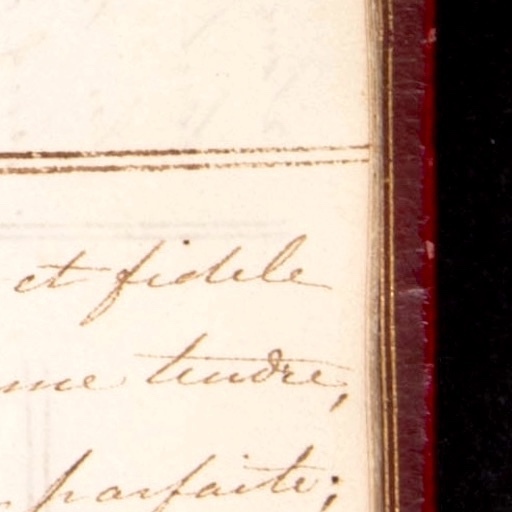 et fidele
me tendre,
parfaite;